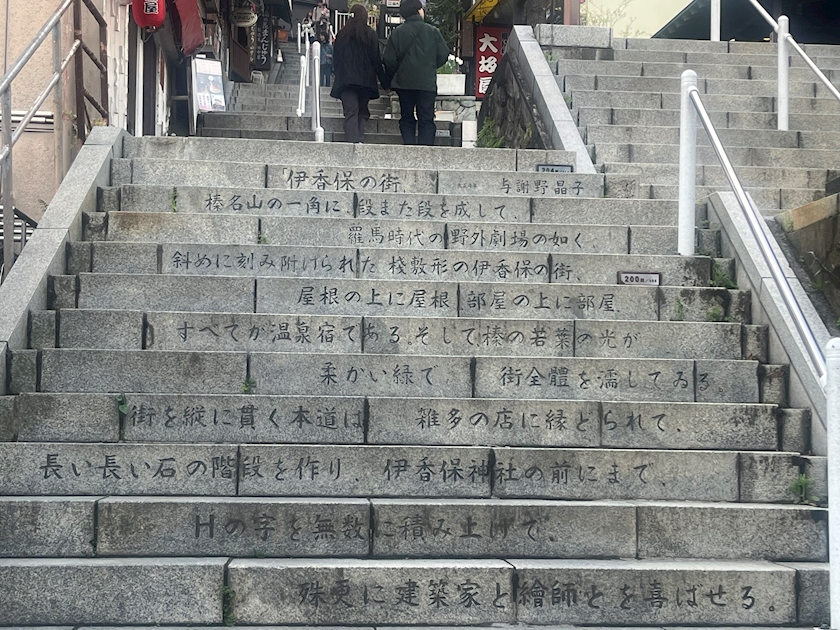 大坂屋
204段
「伊香保の街 与謝野晶子
榛名山の一角に、段また段を成して、
羅馬時代の野外劇場の如く、
斜めに刻み附けられた 桟敷形の伊香保の街、
200段
屋根の上に屋根、部屋の上に部屋、
すべてが温泉宿である。そして、榛の若葉の光が
柔かい緑で、 街全體を濡してゐる。
街を縦に貫く本道は 雑多の店に縁どられて、
長い長い石の階段を作り、伊香保神社の前にまで、
Hの字を無数に積み上げて、
殊更に建築家と繪師とを喜ばせる。